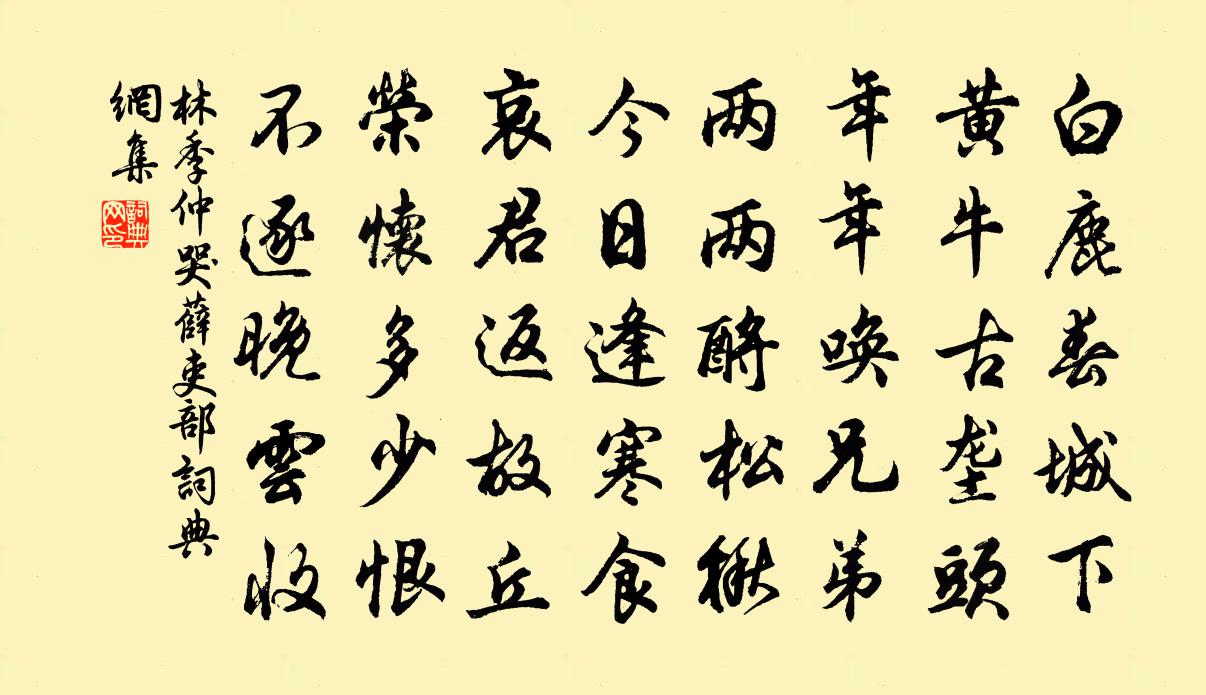 白鹿春城下
黄牛古垄頭
年年唤兄弟
两两酹松楸
今日逢寒食
哀君返故丘
榮懷多少恨
不逐晚雲收
林季仲哭薛吏部詞典
網集
詞典
网印